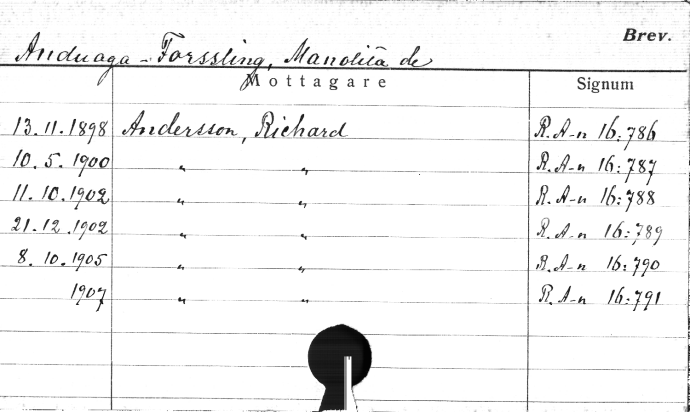 Brev.
Anduaga-Forssling, Manolita de
Mottagare Signum
13.11.1898 Andersson, Richard R.A-n 16:786
10.5.1900 " " R.A-n 16:787
11.10.1902 " " R.A-n 16:788
21.12.1902 " " R.A-n 16:789
8.10.1905 " " R.A-n 16:790
1907 " " R.A-n 16:791